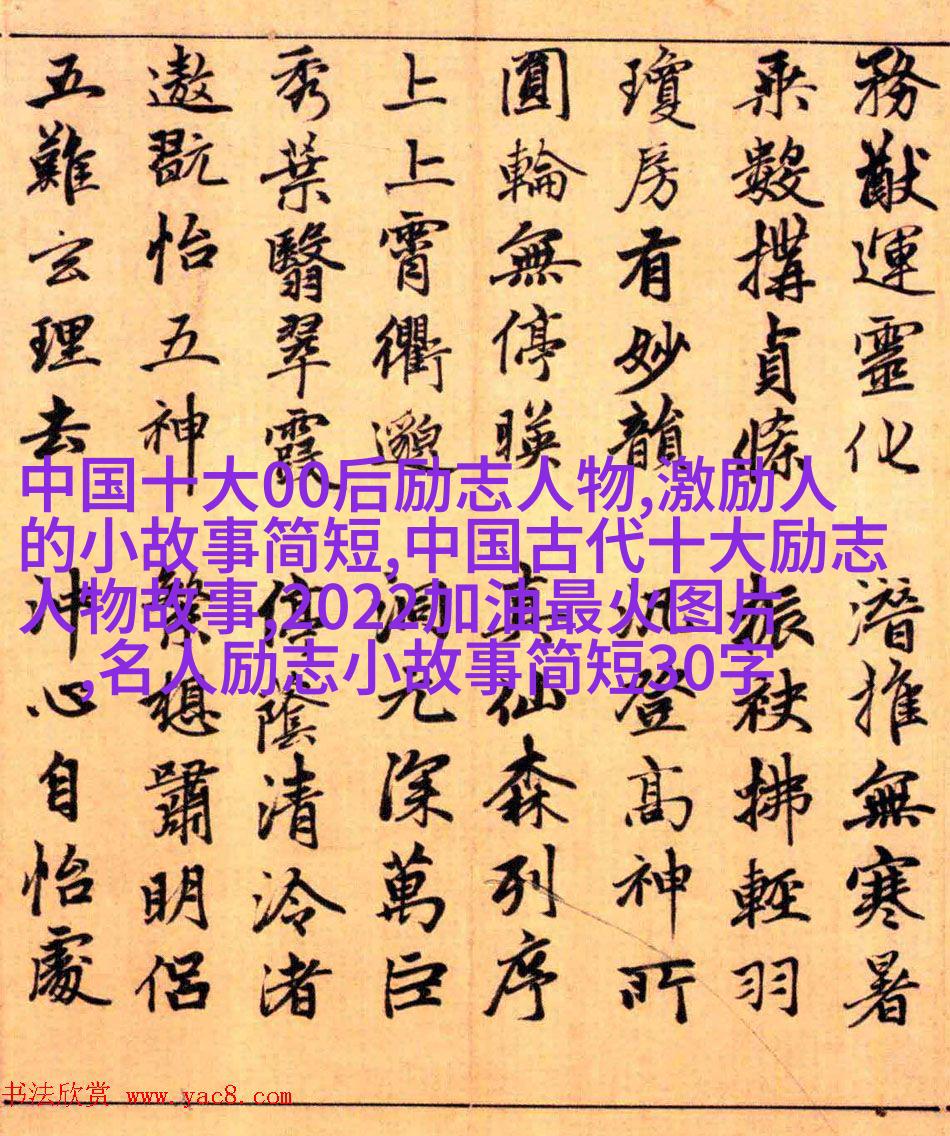 務猷運靈化潛推無寒暑
乗數搆貞條振袂拂輕羽
瓊房有妙韻登高神所
圓輪無停暎真仙森列序
上上霄衢邈洞元深萬巨
秀葉翳翠霞停陰清泠渚
遨翫怡五神繁想嘯明侣
五難玄理去冲心自怡處
中国十大00后励志人物,激励人
的小故事简短,中国古代十大励志
人物故事,2022加油最火图片
,名人励志小故事简短30字
书法欣赏 www.yac8.com